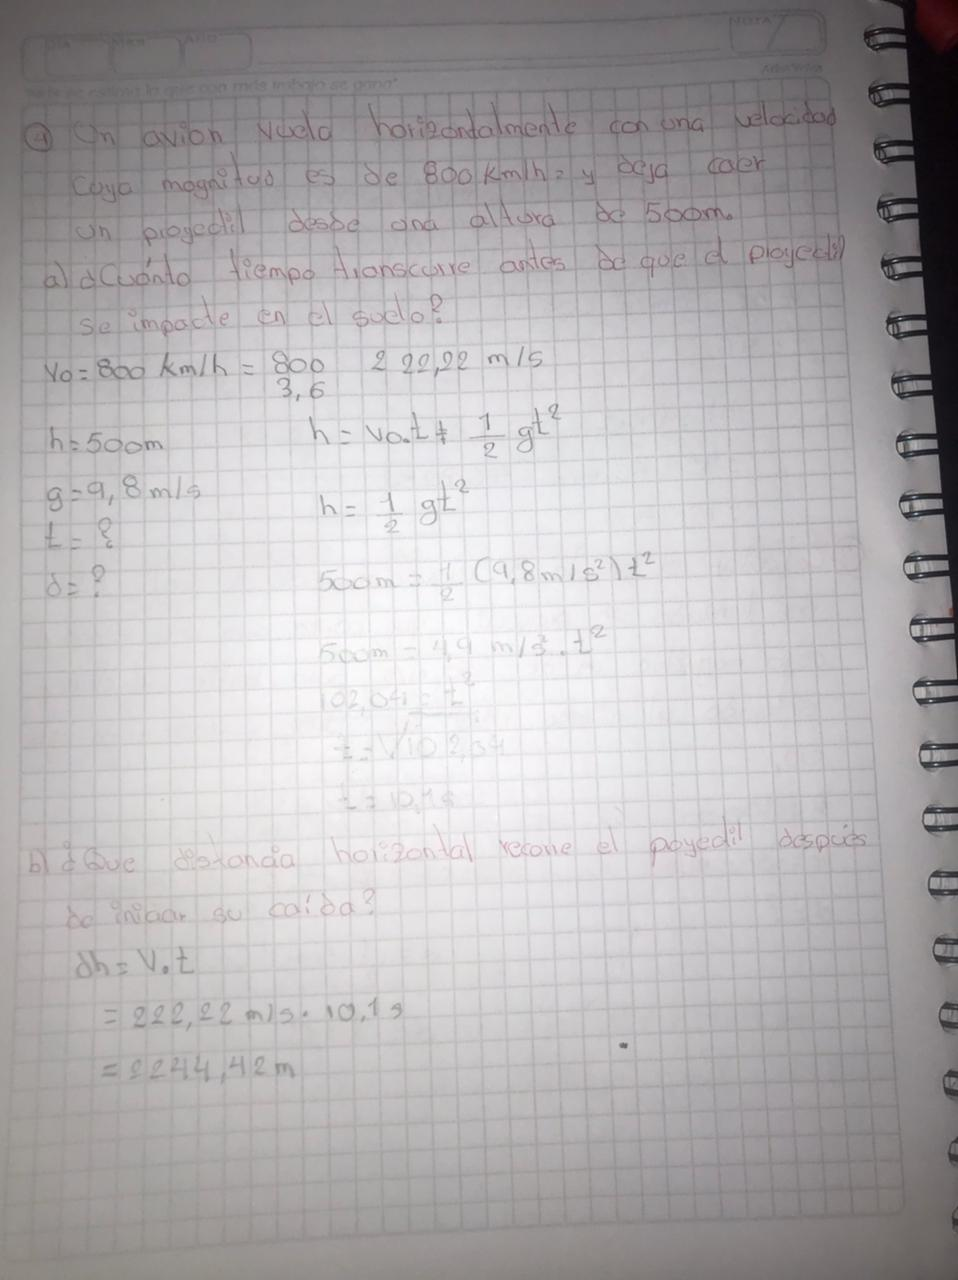 NOTA
④ Un avion vuela horizontalmente con una velocidad
cuya magnitud es de 800 km/h, y deja caer
un proyectil desde una altura de 500m.
a) ¿Cuánto tiempo transcurre antes de que el proyectil
se impacte en el suelo?
Vo = 800 km/h = 800/3,6 222,22 m/s
h = 500m
h = vo.t + 1/2 gt²
g = 9,8 m/s
h = 1/2 gt²
t = ?
500m = 1/2 (9,8 m/s²) t²
d = ?
500m = 4,9 m/s² . t²
102,04 = t²
t = √102,04
t = 10,1s
b) ¿Que distancia horizontal recorre el poyectil después
de iniciar su caída?
dh = V.t
= 222,22 m/s . 10,1 s
= 2244,42 m